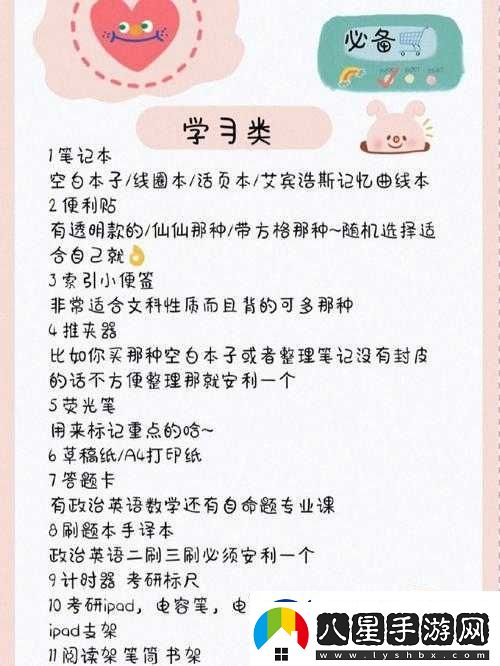 必备
学习类
1笔记本
空白本子/线圈本/活页本/艾宾浩斯记忆曲线本
2便利贴
有透明款的/仙仙那种/带方格那种~随机选择适
合自己就👌
3索引小便签
非常适合文科性质而且背的可多那种
4推夹器
比如你买那种空白本子或者整理笔记没有封皮
的话不方便整理那就安利一个
5荧光笔
用来标记重点的哈~
6草稿纸/A4打印纸
7答题卡
有政治英语数学还有自命题专业课
8刷题本手译本
政治英语二刷三刷必须安利一个
9计时器 考研标尺
10考研ipad，电容笔，电
ipad支架
11阅读架笔筒书架
八星手游网
www.lyshbx.com